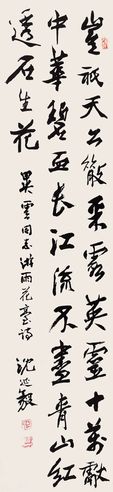 豈祇天公散采霞英靈十萬獻
中華碧血長江流不盡青山紅
透石生花
雲同志游雨花臺詩
沈延毅